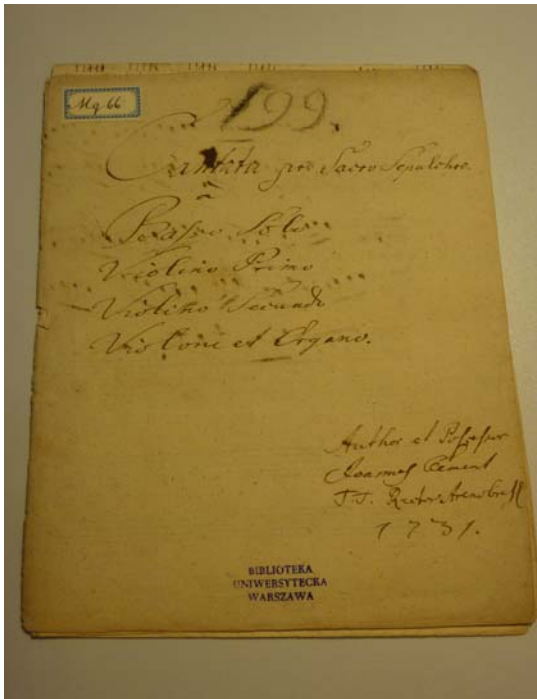 Mq 66
199.
Cantata pro Sacro Sepulchro.
â
Basso Solo
Violino Primo
Violino Secundo
Violone et Organo.
Author et Possessor
Joannes Clement
T. T. Rector
1731.
BIBLIOTEKA
UNIWERSYTECKA
WARSZAWA